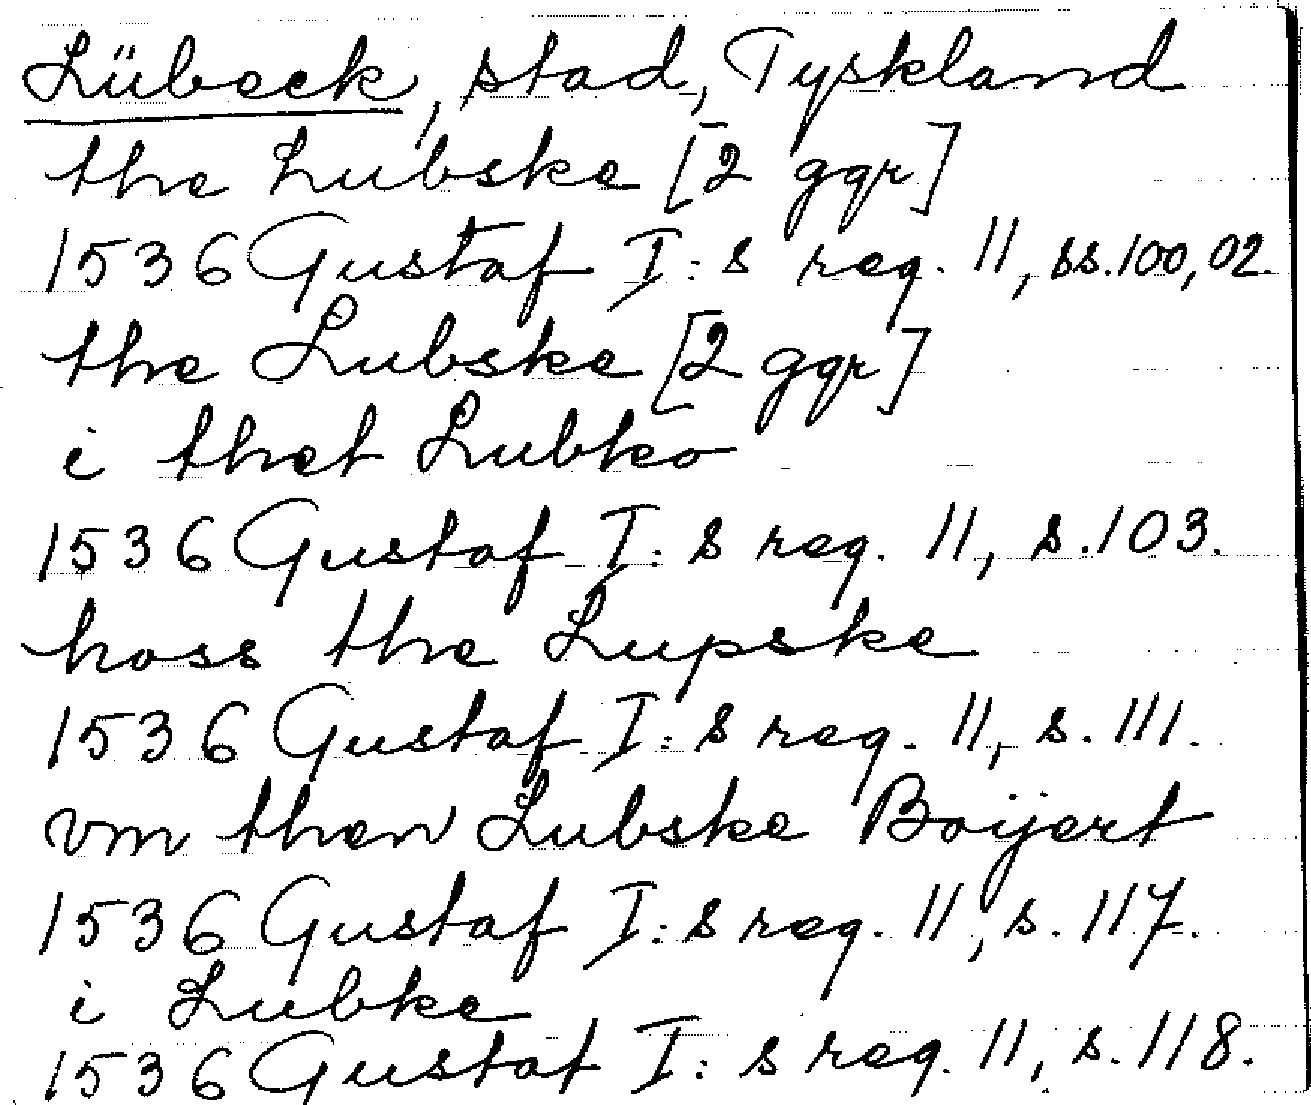 Lübeck, stad, Tyskland
the Lubske [2 ggr]
1536 Gustaf I:s reg. 11, ss.100,02.
the Lubske [2 ggr]
i thet Lubko
1536 Gustaf I:s reg. 11, s.103.
hoss the Lupske
1536 Gustaf I:s reg. 11, s.111.
vm then Lubske Boijert
1536 Gustaf I:s reg. 11, s.117.
i Lubke
1536 Gustaf I:s reg. 11, s.118.